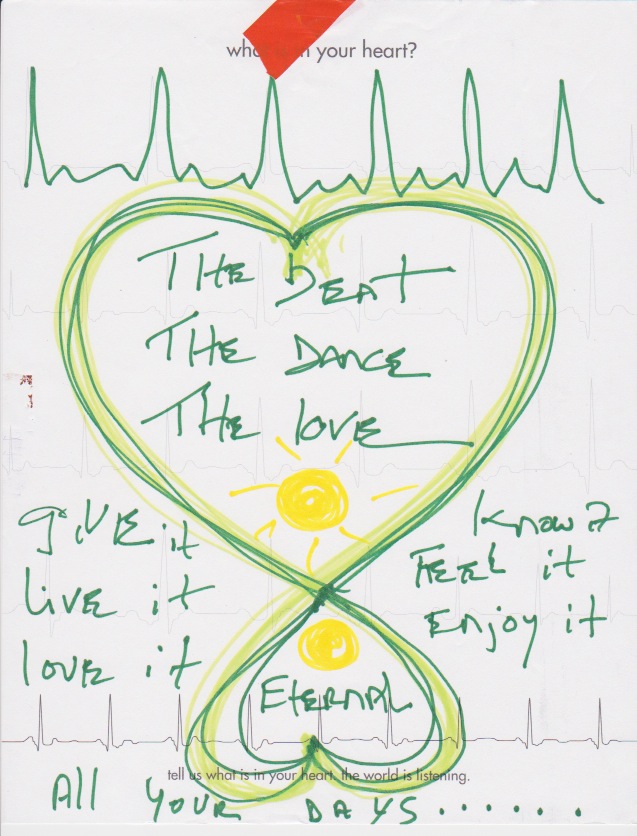 what's in your heart?
THE bEAT
THE DANCE
THE lovE
giVE it
liVE it
lovE it
know it
FEEL it
Enjoy it
EtERNAL
tell us what is in your heart. the world is listening.
All YOUR DAYS.......